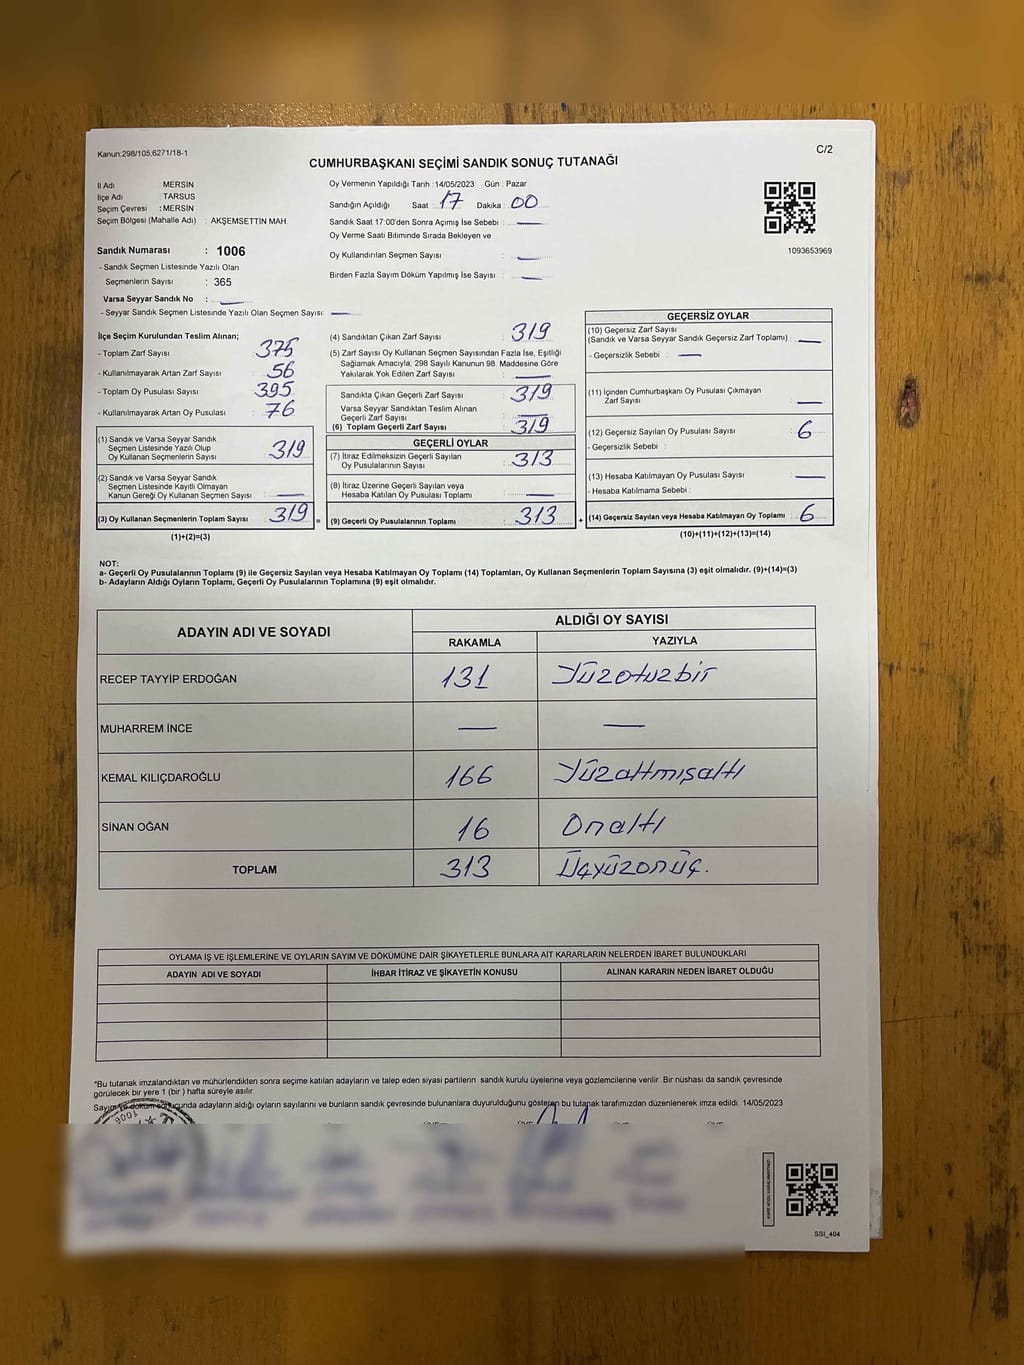 Kanun:298/105;6271/18-1
C/2
CUMHURBAŞKANI SEÇİMİ SANDIK SONUÇ TUTANAĞI
İl Adı : MERSİN
İlçe Adı : TARSUS
Seçim Çevresi : MERSİN
Seçim Bölgesi (Mahalle Adı) : AKŞEMSETTİN MAH.
Sandık Numarası : 1006
- Sandık Seçmen Listesinde Yazılı Olan
Seçmenlerin Sayısı : 365
Varsa Seyyar Sandık No : —
- Seyyar Sandık Seçmen Listesinde Yazılı Olan Seçmen Sayısı: —
Oy Vermenin Yapıldığı Tarih :14/05/2023 Gün : Pazar
Sandığın Açıldığı Saat : 17 Dakika : 00
Sandık Saat 17.00'den Sonra Açılmış İse Sebebi : —
Oy Verme Saati Bitiminde Sırada Bekleyen ve
Oy Kullandırılan Seçmen Sayısı : —
Birden Fazla Sayım Döküm Yapılmış İse Sayısı : —
1093653969
İlçe Seçim Kurulundan Teslim Alınan;
- Toplam Zarf Sayısı : 375
- Kullanılmayarak Artan Zarf Sayısı : 56
- Toplam Oy Pusulası Sayısı : 395
- Kullanılmayarak Artan Oy Pusulası : 76
(1) Sandık ve Varsa Seyyar Sandık
Seçmen Listesinde Yazılı Olup
Oy Kullanan Seçmenlerin Sayısı : 319
(2) Sandık ve Varsa Seyyar Sandık
Seçmen Listesinde Kayıtlı Olmayan
Kanun Gereği Oy Kullanan Seçmen Sayısı : —
(3) Oy Kullanan Seçmenlerin Toplam Sayısı : 319 =
(1)+(2)=(3)
(4) Sandıktan Çıkan Zarf Sayısı : 319
(5) Zarf Sayısı Oy Kullanan Seçmen Sayısından Fazla İse, Eşitliği
Sağlamak Amacıyla, 298 Sayılı Kanunun 98. Maddesine Göre
Yakılarak Yok Edilen Zarf Sayısı : —
Sandıkta Çıkan Geçerli Zarf Sayısı : 319
Varsa Seyyar Sandıktan Teslim Alınan
Geçerli Zarf Sayısı : —
(6) Toplam Geçerli Zarf Sayısı : 319
GEÇERLİ OYLAR
(7) İtiraz Edilmeksizin Geçerli Sayılan
Oy Pusulalarının Sayısı : 313
(8) İtiraz Üzerine Geçerli Sayılan veya
Hesaba Katılan Oy Pusulası Toplamı : —
(9) Geçerli Oy Pusulalarının Toplamı : 313 +
GEÇERSİZ OYLAR
(10) Geçersiz Zarf Sayısı
(Sandık ve Varsa Seyyar Sandık Geçersiz Zarf Toplamı) : —
- Geçersizlik Sebebi : —
(11) İçinden Cumhurbaşkanı Oy Pusulası Çıkmayan
Zarf Sayısı : —
(12) Geçersiz Sayılan Oy Pusulası Sayısı : 6
- Geçersizlik Sebebi :
(13) Hesaba Katılmayan Oy Pusulası Sayısı : —
- Hesaba Katılmama Sebebi :
(14) Geçersiz Sayılan veya Hesaba Katılmayan Oy Toplamı : 6
(10)+(11)+(12)+(13)=(14)
NOT:
a- Geçerli Oy Pusulalarının Toplamı (9) ile Geçersiz Sayılan veya Hesaba Katılmayan Oy Toplamı (14) Toplamları, Oy Kullanan Seçmenlerin Toplam Sayısına (3) eşit olmalıdır. (9)+(14)=(3)
b- Adayların Aldığı Oyların Toplamı, Geçerli Oy Pusulalarının Toplamına (9) eşit olmalıdır.
ADAYIN ADI VE SOYADI
ALDIĞI OY SAYISI
RAKAMLA YAZIYLA
RECEP TAYYİP ERDOĞAN 131 Yüzotuzbir
MUHARREM İNCE — —
KEMAL KILIÇDAROĞLU 166 Yüzaltmışaltı
SİNAN OĞAN 16 Onaltı
TOPLAM 313 Üçyüzonüç.
OYLAMA İŞ VE İŞLEMLERİNE VE OYLARIN SAYIM VE DÖKÜMÜNE DAİR ŞİKAYETLERLE BUNLARA AİT KARARLARIN NELERDEN İBARET BULUNDUKLARI
ADAYIN ADI VE SOYADI İHBAR İTİRAZ VE ŞİKAYETİN KONUSU ALINAN KARARIN NEDEN İBARET OLDUĞU
*Bu tutanak imzalandıktan ve mühürlendikten sonra seçime katılan adayların ve talep eden siyasi partilerin sandık kurulu üyelerine veya gözlemcilerine verilir .Bir nüshası da sandık çevresinde
görülecek bir yere 1 (bir ) hafta süreyle asılır.
Sayım ve döküm sonucunda adayların aldığı oyların sayılarını ve bunların sandık çevresinde bulunanlara duyurulduğunu gösteren bu tutanak tarafımızdan düzenlenerek imza edildi. 14/05/2023
1006
SSI_404